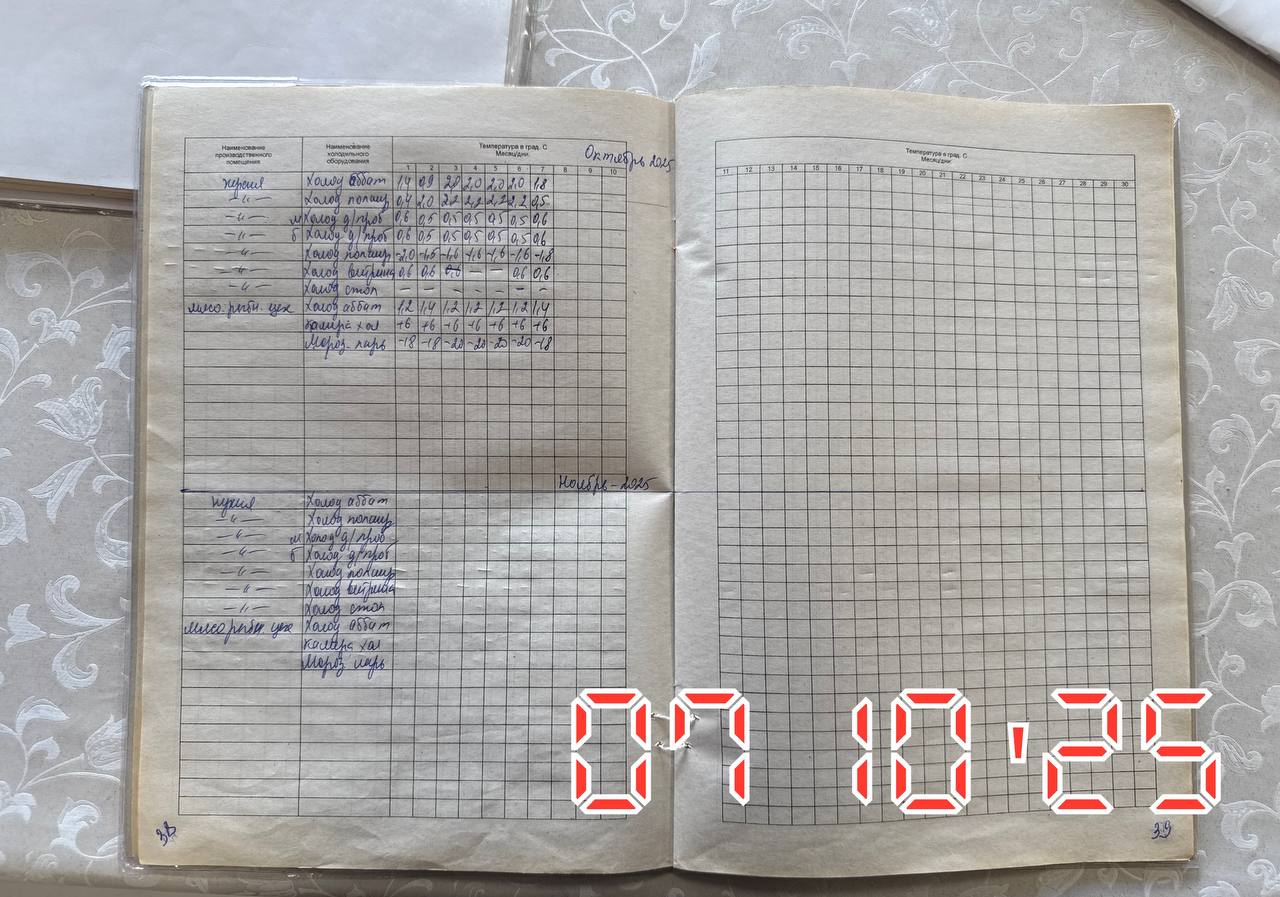 Наименование производственного помещения Наименование холодильного оборудования Температура в град. С Месяц/дни. Октябрь 2025
1 2 3 4 5 6 7 8 9 10
кухня Холод аббат 1,4 0,9 2,0 2,0 2,0 2,0 1,8
—〃— Холод 0,4 2,0 2,2 2,2 2,2 2,2 0,5
—〃— м Холод д/проб 0,6 0,5 0,5 0,5 0,5 0,5 0,6
—〃— б Холод д/проб 0,6 0,5 0,5 0,5 0,5 0,5 0,6
—〃— Холод -2,0 -1,5 -1,6 -1,6 -1,6 -1,6 -1,8
—〃— Холод витрина 0,6 0,6 0,6 — — 0,6 0,6
—〃— Холод стол — — — — — — —
мясо.рыбн. цех Холод аббат 1,2 1,4 1,2 1,2 1,2 1,2 1,4
камера хол +6 +6 +6 +6 +6 +6 +6
Мороз. ларь -18 -18 -20 -20 -20 -20 -18
Ноябрь - 2025
кухня Холод аббат
—〃— Холод
—〃— м Холод д/проб
—〃— б Холод д/проб
—〃— Холод
—〃— Холод витрина
—〃— Холод стол
мясорыбн. цех Холод аббат
камера хол
Мороз ларь
38
Температура в град. С
Месяц/дни:
11 12 13 14 15 16 17 18 19 20 21 22 23 24 25 26 27 28 29 30
39
07 10 '25